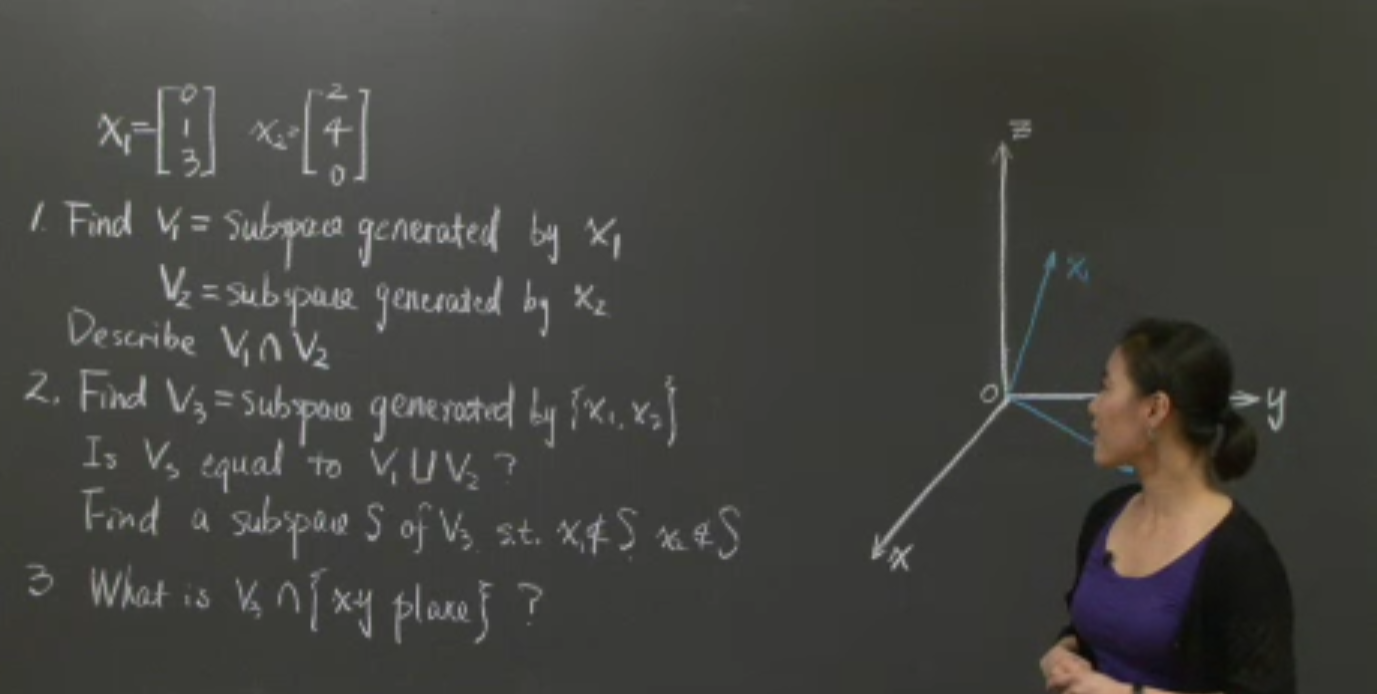 x₁ = [0 1 3] x₂ = [2 4 0]
1. Find V₁ = subspace generated by x₁
V₂ = subspace generated by x₂
Describe V₁ ∩ V₂
2. Find V₃ = subspace generated by {x₁, x₂}
Is V₃ equal to V₁ ∪ V₂ ?
Find a subspace S of V₃ s.t. x₁ ∉ S x₂ ∉ S
3 What is V₃ ∩ {xy plane} ?
z
x₁
0
y
x